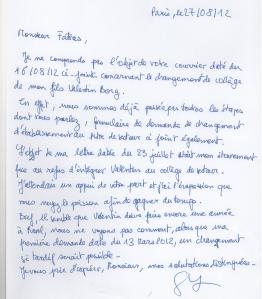 Paris, le 27/08/12
Monsieur Fatras,
Je ne comprends pas l'objet de votre courrier daté du
16/08/12 ci-joint concernant le changement de collège
de mon fils Valentin Borg.
En effet, nous sommes déjà passés par toutes les étapes
dont vous parlez, formulaire de demande de changement
d'établissement au titre de secteur ci joint également.
L'objet de ma lettre datée du 23 juillet était mon étonnement
face au refus d'intégrer Valentin au collège de secteur.
J'attendais un appui de votre part et j'ai l'impression que
vous noyez le poisson afin de gagner du temps.
Bref, il semble que Valentin devra faire encore une année
à nous ne voyons pas comment, alors que ma
première demande date du 13 Mars 2012, un changement
si tardif serait possible -
Je vous prie d'agréer, Monsieur, mes salutations distinguées -